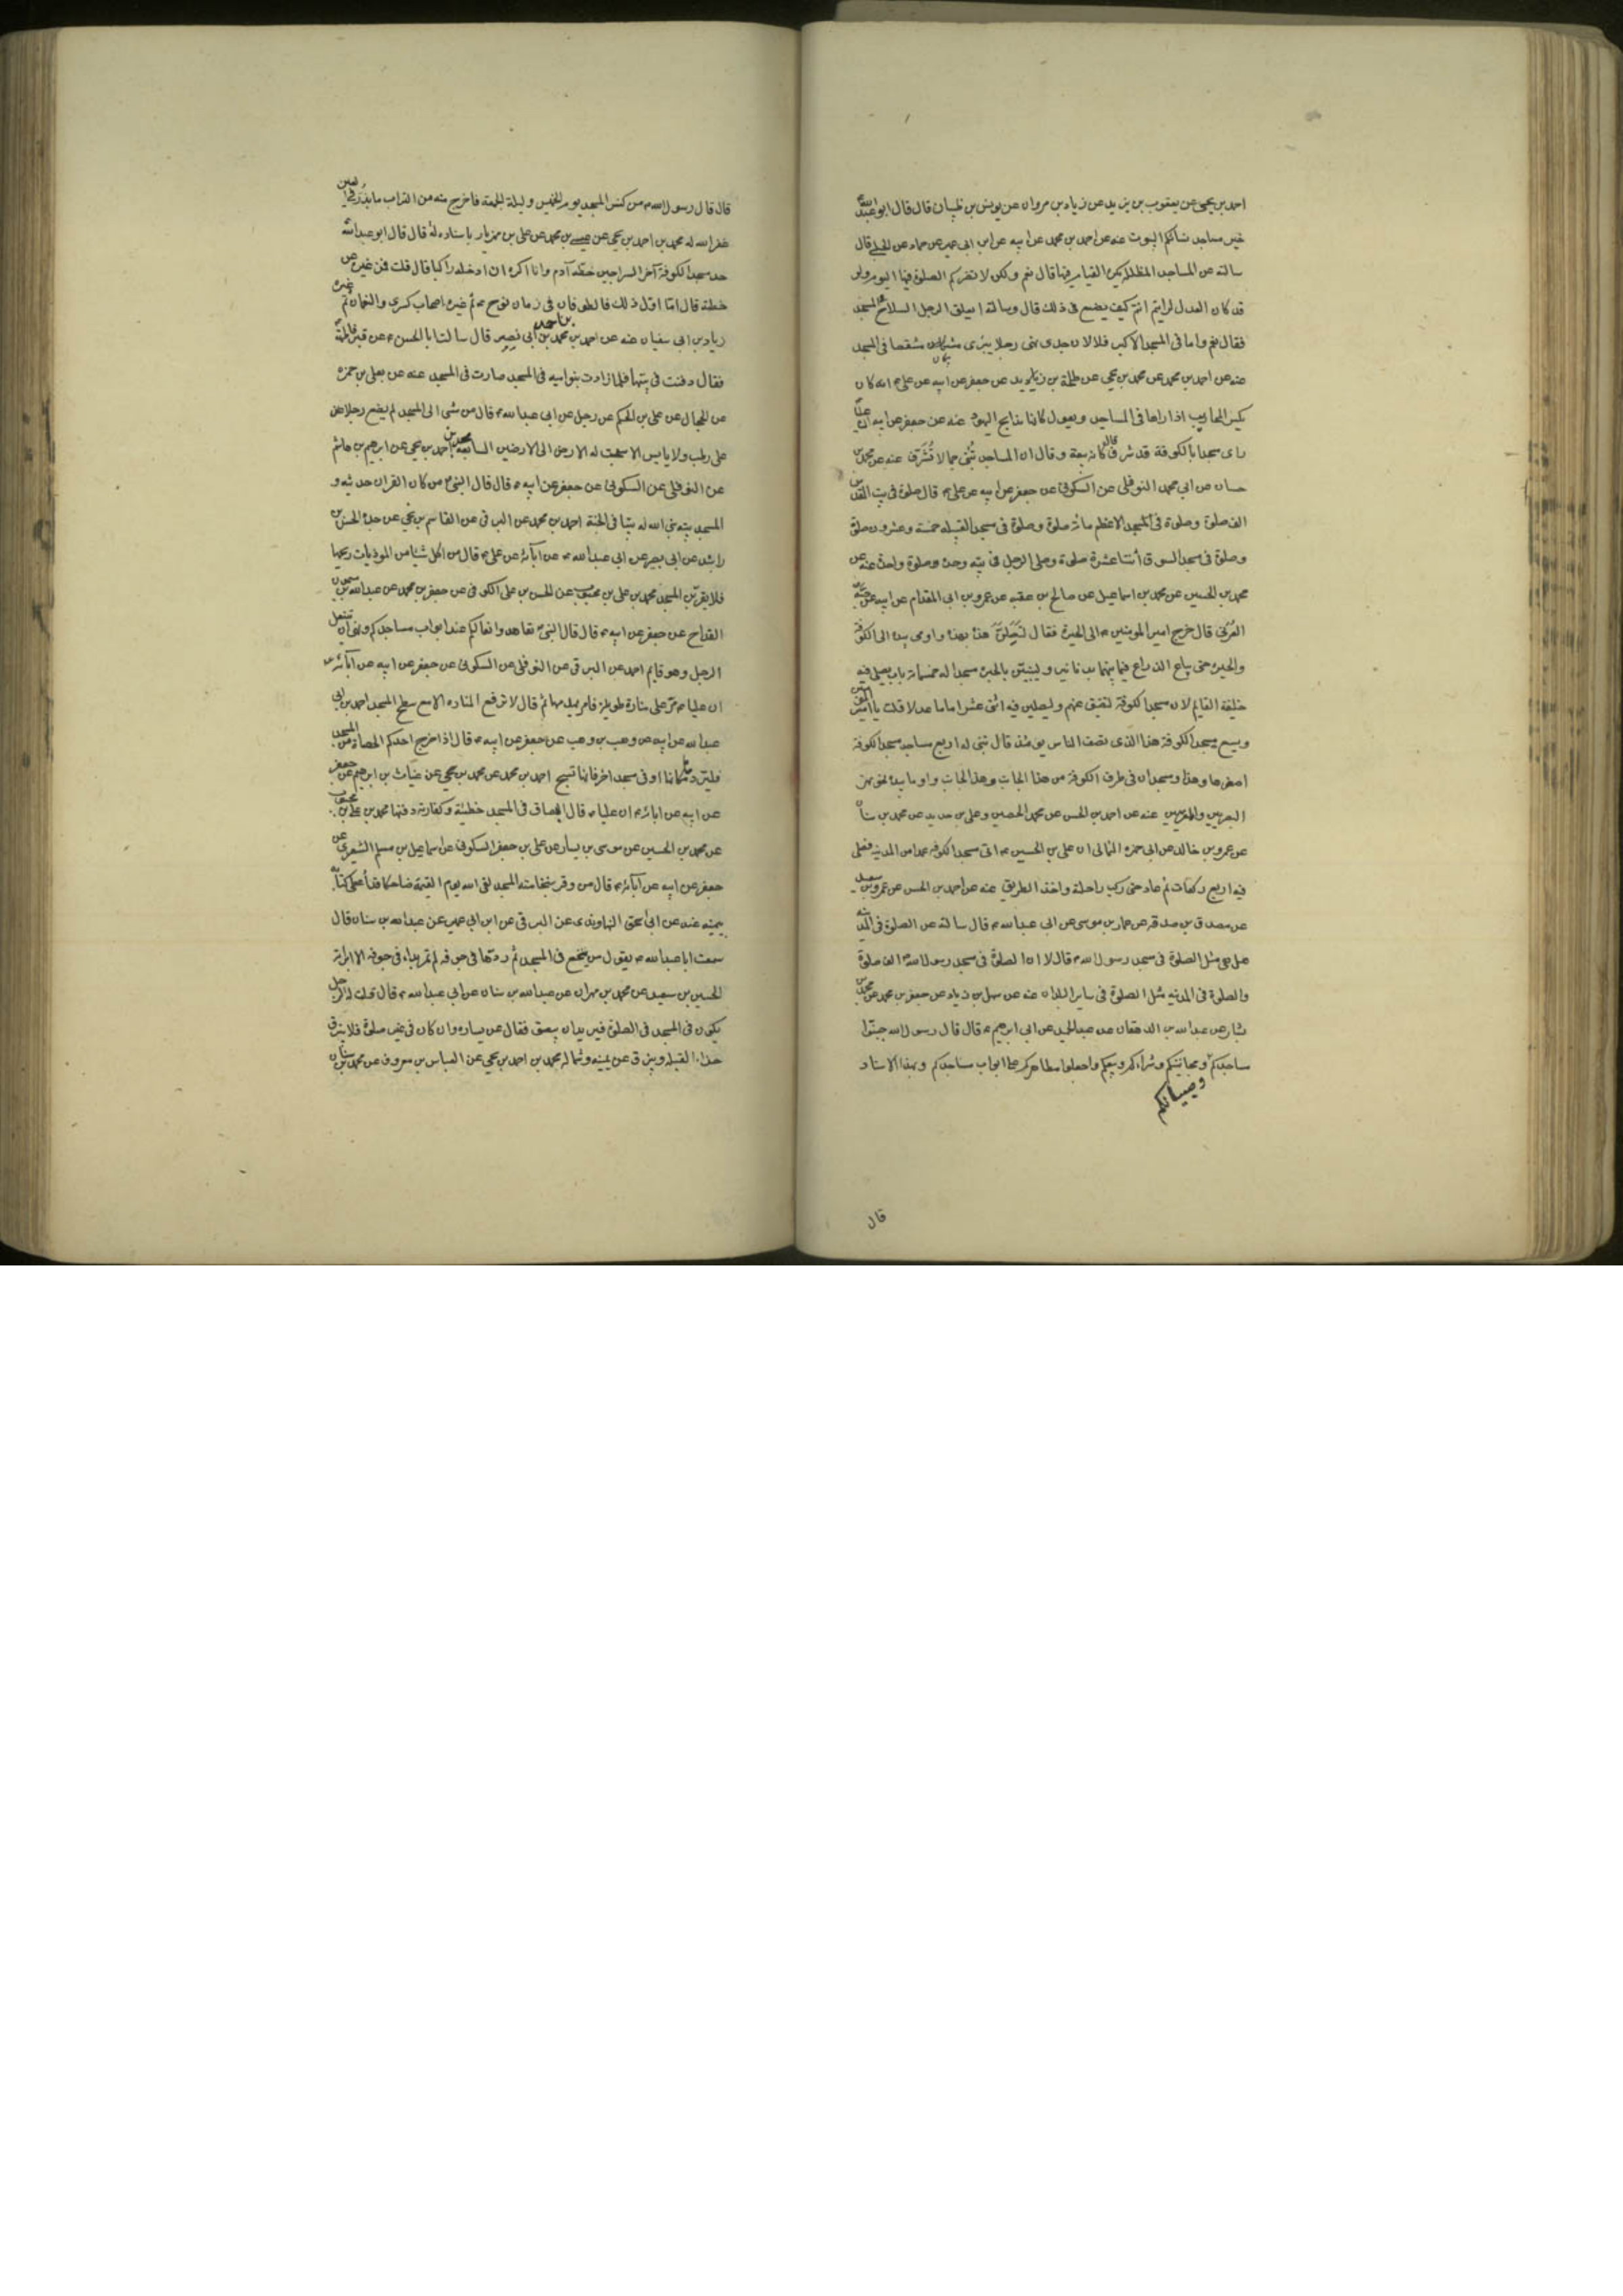 احمد بن يحيى عن يعقوب بن يزيد عن زياد بن مروان عن يونس بن ظبيان قال قال ابو عبدالله
خير مساجد نسائكم البيوت عنه عن احمد بن محمد عن ابيه عن ابن ابى عمير عن حماد عن الحلبي قال
سالته عن المساجد المظللة يكره القيام فيها قال نعم ولكن لا تضركم الصلوة فيها اليوم ولو
قد كان العدل لرايتم انتم كيف يصنع فى ذلك قال وسالته ايعلق الرجل السلاح فى المسجد
فقال نعم واما فى المسجد الاكبر فلا لان جدى نهى رجلا يبرى مشقصا فى المسجد
عنه عن احمد بن محمد عن محمد بن يحيى عن طلحة بن زيد عن جعفر عن ابيه عن على انه كان
يكسر المحاريب اذا راها فى المساجد ويقول كانها مذابح اليهود عنه عن جعفر عن ابيه ان عليا
راى مسجدا بالكوفة قد شرف قال كانه بيعة وقال ان المساجد تبنى جما لا تشرف عنه عن محمد بن
حسان عن ابى محمد النوفلى عن السكونى عن جعفر عن ابيه عن على قال صلوة فى بيت المقدس
الف صلوة وصلوة فى المسجد الاعظم مائة صلوة وصلوة فى مسجد القبيلة خمسة وعشرون صلوة
وصلوة فى مسجد السوق اثنتا عشرة صلوة وصلوة الرجل فى بيته وحده صلوة واحدة عنه عن
محمد بن الحسين عن محمد بن اسماعيل عن صالح بن عقبه عن عمرو بن ابى المقدام عن ابيه عن حبة
العرنى قال خرج امير المومنين الى الحيرة فقال لتتصلن هذه بهذه واومى بيده الى الكوفة
والحيرة حتى يباع الذراع فيما بينهما بدنانير وليبنين بالحيرة مسجد له خمسمائة باب يصلى فيه
خليفة القايم لان مسجد الكوفة لتضيق عنهم وليصلين فيه اثنى عشر اماما عدلا قلت يا امير المومنين
ويسع مسجد الكوفة هذا الذى تصف الناس يومئذ قال تبنى له اربع مساجد مسجد الكوفة
اصغرها وهذا ومسجدان فى طرف الكوفة من هذا الجانب وهذا الجانب واوما بيده نحو نهر
البصريين والغريين عنه عن احمد بن الحسن عن محمد بن الحصين وعلى بن حديد عن محمد بن سنان
عن عمرو بن خالد عن ابى حمزه الثمالى ان على بن الحسين اتى مسجد الكوفه عمدا من المدينه فصلى
فيه اربع ركعات ثم عاد حتى ركب راحلته واخذ الطريق عنه عن احمد بن الحسن عن عمرو بن سعيد
عن مصدق بن صدقه عن عمار بن موسى عن ابى عبدالله قال سالته عن الصلوة فى المدينه
هل هى مثل الصلوة فى مسجد رسول الله قال لا ان الصلوة فى مسجد رسول الله الف صلوة
والصلوة فى المدينه مثل الصلوة فى ساير البلدان عنه عن سهل بن زياد عن جعفر بن محمد عن محمد بن
بشار عن عبدالله الدهقان عن عبدالحميد عن ابى ابرهيم قال قال رسول الله جنبوا
مساجدكم ومجانينكم وشراءكم وبيعكم واجعلوا مطاهركم على ابواب مساجدكم وبهذا الاسناد
وصبيانكم
قال
قال قال رسول الله من كنس المسجد يوم الخميس وليلة الجمعة فاخرج منه من التراب ما يذر فى العين
غفر الله له محمد بن احمد بن يحيى عن عيسى بن محمد عن على بن مهزيار باسناد له قال قال ابو عبدالله
حد مسجد الكوفة آخر السراجين خطه آدم وانا اكره ان ادخله راكبا قال قلت فمن غيره عن
خطته قال اما اول ذلك فالطوفان فى زمان نوح ثم غيره اصحاب كسرى والنعمان ثم غيره
زياد بن ابى سفيان عنه عن احمد بن محمد بن ابى نصر قال سالت ابا الحسن عن قبر فاطمة
فقال دفنت فى بيتها فلما زادت بنو اميه فى المسجد صارت فى المسجد عنه عن يعلى بن حمزه
عن الحجال عن على بن الحكم عن رجل عن ابى عبدالله قال من مشى الى المسجد لم يضع رجلا على
على رطب ولا يابس الا سبحت له الارض الى الارضين السابعة محمد بن احمد بن يحيى عن ابرهيم بن هاشم
عن النوفلى عن السكونى عن جعفر عن ابيه قال قال النبى من كان القران حديثه و
المسجد بيته بنى الله له بيتا فى الجنة احمد بن محمد عن البرقى عن القاسم بن يحيى عن جده الحسن بن
راشد عن ابى بصير عن ابى عبدالله عن آبائه عن على قال من اكل شيئا من الموذيات ريحها
فلا يقربن المسجد محمد بن على بن محبوب عن الحسن بن على الكوفى عن جعفر بن محمد عن عبدالله بن ميمون
القداح عن جعفر عن ابيه قال قال النبى تعاهدوا نعالكم عند ابواب مساجدكم ونهى ان يتنعل
الرجل وهو قايم احمد عن البرقى عن النوفلى عن السكونى عن جعفر عن ابيه عن آبائه
ان عليا مر على منارة طويلة فامر بهدمها ثم قال لا ترفع المناره الا مع سطح المسجد احمد بن ابى
عبدالله عن ابيه عن وهب بن وهب عن جعفر عن ابيه قال اذا اخرج احدكم الحصاة من المسجد
فليردها مكانها او فى مسجد اخر فانها تسبح احمد بن محمد عن محمد بن يحيى عن غياث بن ابرهيم عن جعفر
عن ابيه عن ابائه ان عليا قال البصاق فى المسجد خطيئة وكفارته دفنها محمد بن على بن محبوب
عن محمد بن الحسين عن موسى بن يسار عن على بن جعفر السكونى عن اسماعيل بن مسلم الشعيرى عن
جعفر عن ابيه عن آبائه قال من وقر بنخامته المسجد لقى الله يوم القيمة ضاحكا قد اعطى كتابه
بيمينه عنه عن ابى اسحق النهاوندى عن البرقى عن ابن ابى عمير عن عبدالله بن سنان قال
سمعت ابا عبدالله يقول من تنخع فى المسجد ثم ردها فى جوفه لم تمر بداء فى جوفه الا ابراته
الحسين بن سعيد عن محمد بن مهران عن عبدالله بن سنان عن ابى عبدالله قال قلت له الرجل
يكون فى المسجد فى الصلوة فيريد ان يبصق فقال عن يساره وان كان فى غير صلوة فلا يبزق
حذاء القبله ويبزق عن يمينه وشماله محمد بن احمد بن يحيى عن العباس بن معروف عن محمد بن سنان